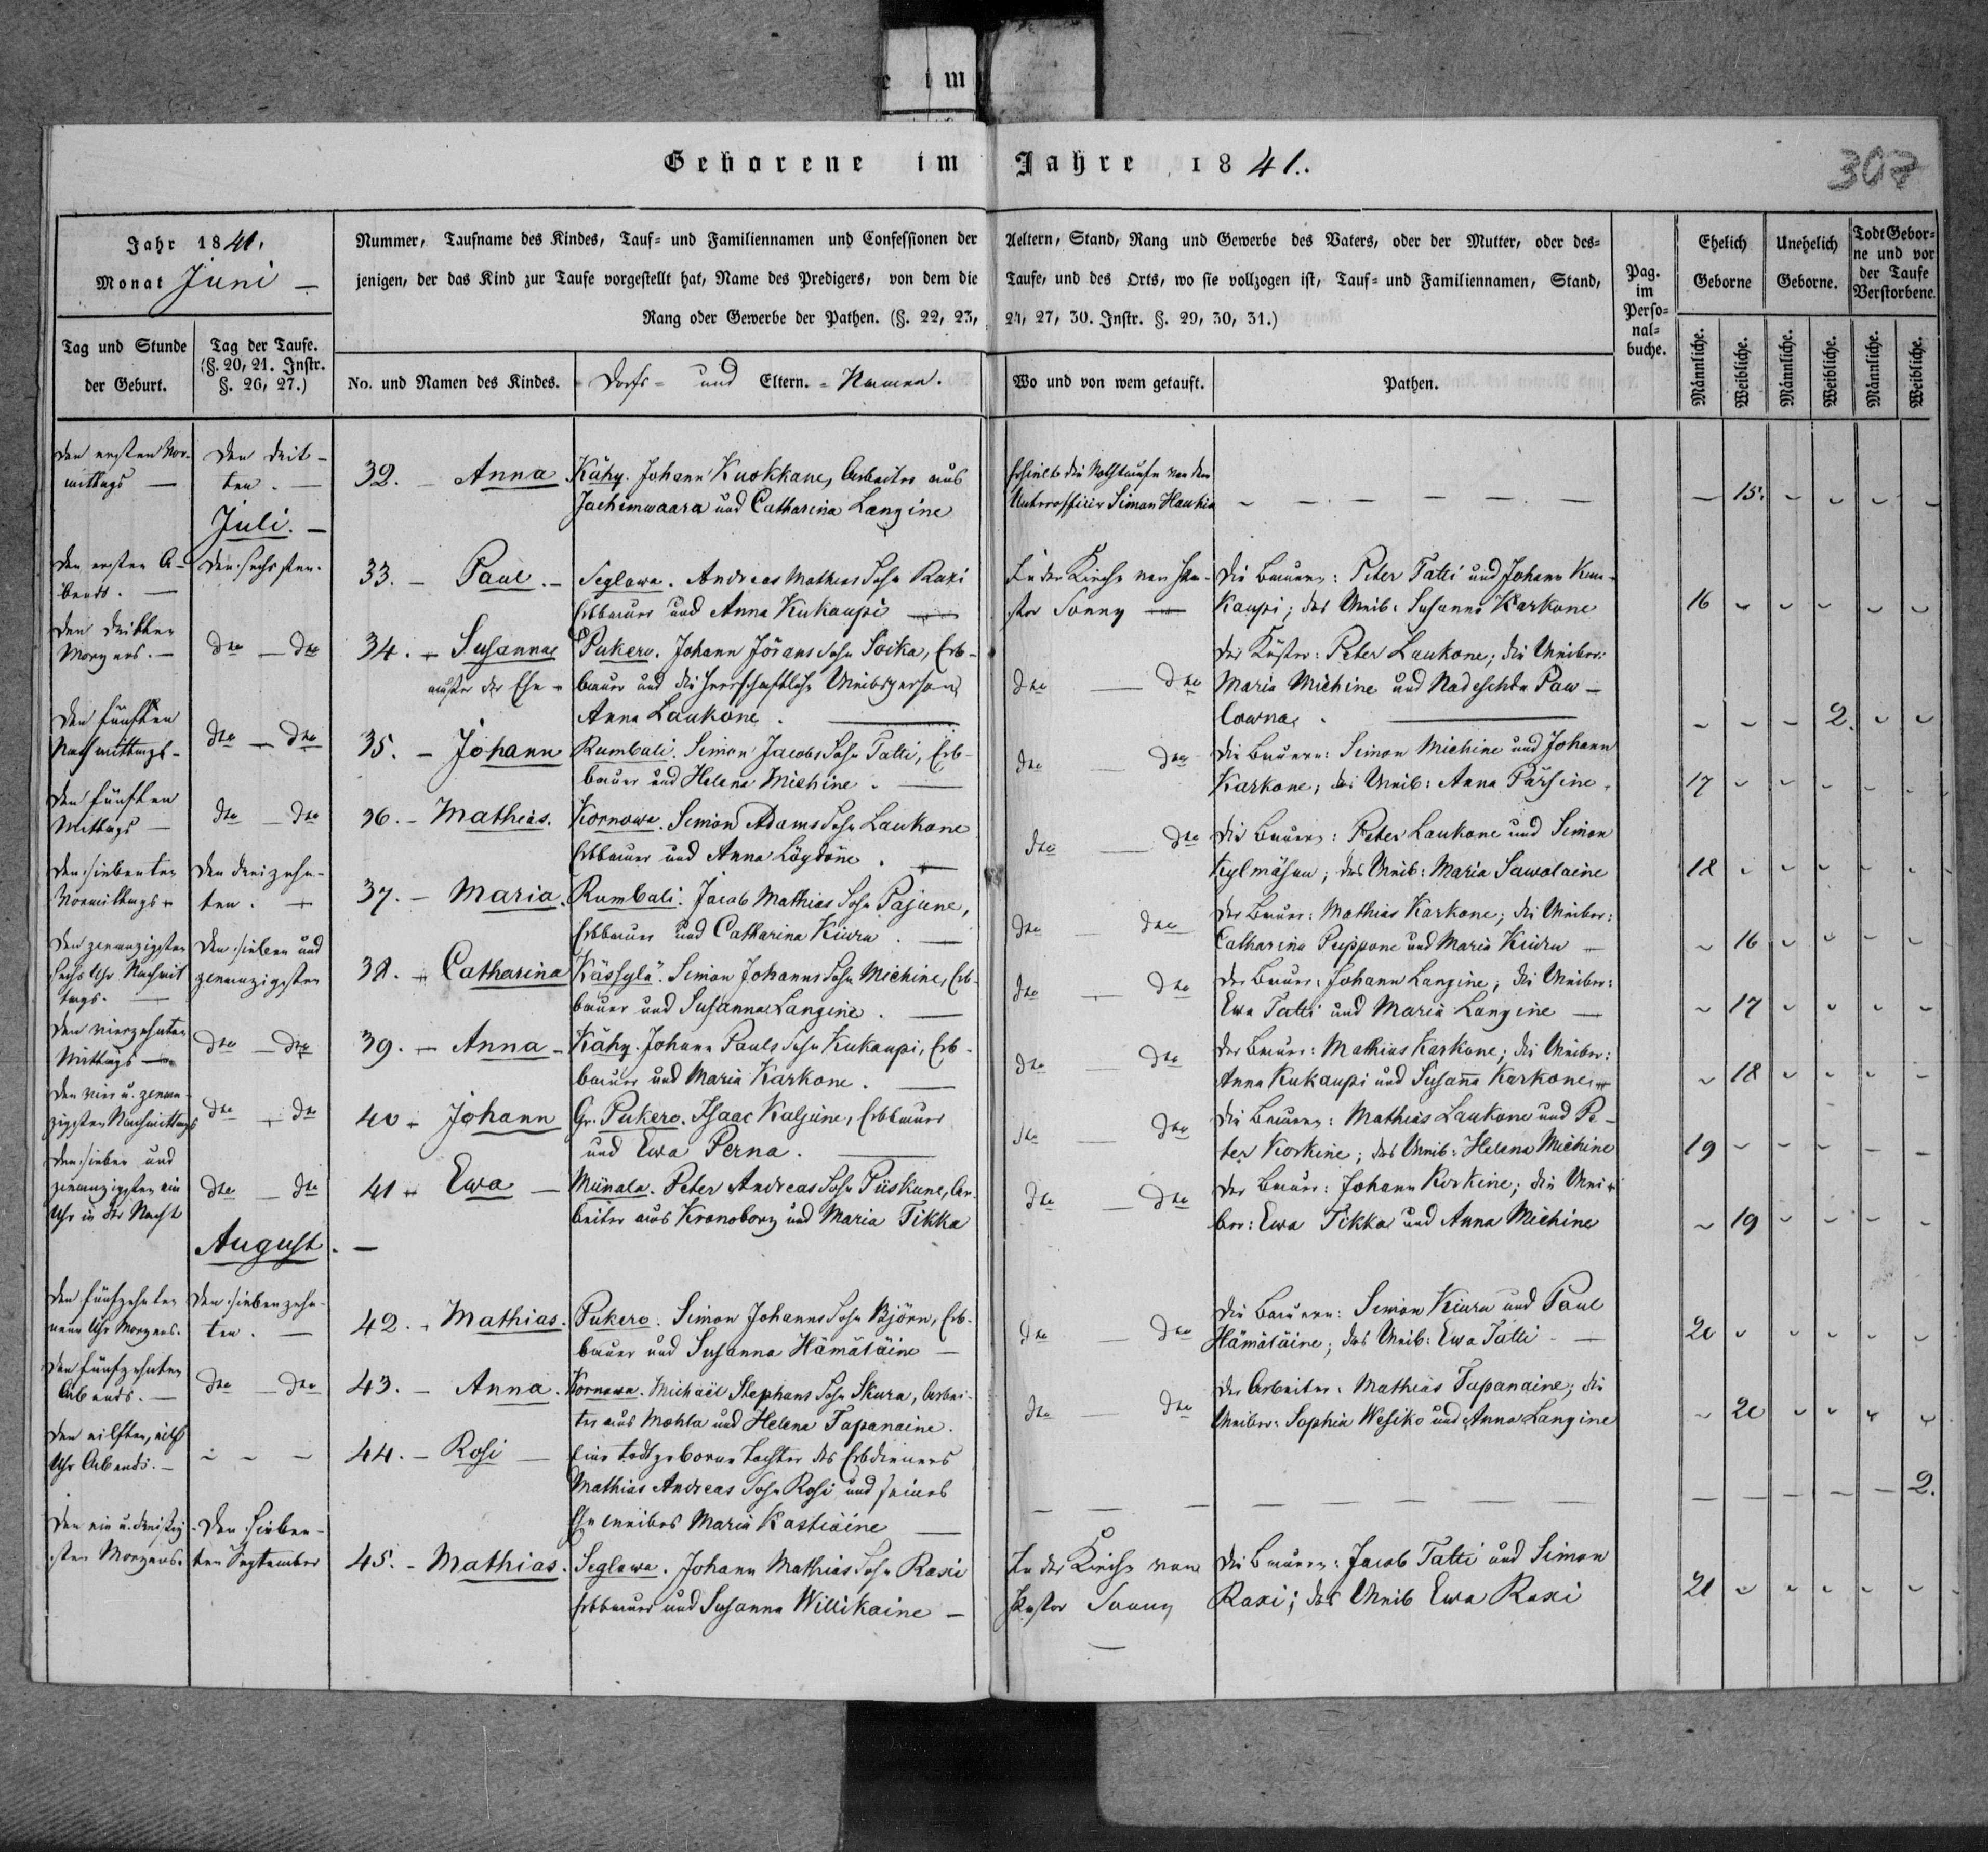 e im
Geborene im Jahre 1841.
307
Jahr 1841,
Monat Juni —
Nummer, Taufname des Kindes, Tauf- und Familiennamen und Confessionen der Aeltern, Stand, Rang und Gewerbe des Vaters, oder der Mutter, oder des-
jenigen, der das Kind zur Taufe vorgestellt hat, Name des Predigers, von dem die Taufe, und des Orts, wo sie vollzogen ist, Tauf- und Familiennamen, Stand,
Rang oder Gewerbe der Pathen. (§. 22, 23, 24, 27, 30. Instr. §. 29, 30, 31.)
Pag.
im
Perso-
nal-
buche.
Ehelich
Geborne
Unehelich
Geborne.
Todt Gebor-
ne und vor
der Taufe
Verstorbene.
Männliche. Weibliche. Männliche. Weibliche. Männliche. Weibliche.
Tag und Stunde
der Geburt.
Tag der Taufe.
(§. 20, 21. Instr.
§. 26, 27.)
No. und Namen des Kindes.
Dorfs- und Eltern-Namen.
Wo und von wem getauft.
Pathen.
den ersten Vor-
mittags —
den drit-
ten. —
32. — Anna
Kähy. Johann Kuokkane, Arbeiter aus
Jachimwaara und Catharina Langine
Erhielt die Nothtaufe von dem
Unterofficier Simon Haukia
15.
Juli. —
den ersten A-
bends. —
den sechsten.
33. — Paul. —
Seglowa. Andreas Mathias Sohn Raxi
Erbbauer und Anna Kukaupi
In der Kirche von Pa-
stor Sonny
Die Bauern: Peter Tatti und Johann Ku-
kaupi; das Weib: Susanna Karkone
16
den dritten
Morgens. —
dto — dto
34. — Susanna
außer der Ehe —
Pukero. Johann Jörans Sohn Soika, Erb-
bauer und die herrschaftliche Weibsperson
Anna Laukone.
dto — dto
Der Küster: Peter Laukone; die Weiber:
Maria Michine und Nadeschda Paw-
lowna.
2.
den fünften
Nachmittags —
dto — dto
35. — Johann
Rumbali. Simon Jacobs Sohn Tatti, Erb-
bauer und Helena Michine.
dto — dto
Die Bauern: Simon Michine und Johann
Karkone; das Weib: Anna Pärsine.
17
den fünften
Mittags —
dto — dto
36. — Mathias.
Kornowa. Simon Adams Sohn Laukone
Erbbauer und Anna Lögdöne.
dto — dto
Die Bauern: Peter Laukone und Simon
Kylmäsuu; das Weib: Maria Sawolaine
18
den siebenten
Vormittags —
den dreizehn-
ten. —
37. — Maria.
Rumbali. Jacob Mathias Sohn Pajune,
Erbbauer und Catharina Kiuru.
dto — dto
Der Bauer: Mathias Karkone; die Weiber:
Catharina Puppone und Maria Kiuru —
16
den zwanzigsten
sechs Uhr Nachmit
tags. —
den sieben und
zwanzigsten
38. — Catharina
Kässylä. Simon Johanns Sohn Michine, Erb-
bauer und Susanna Langine.
dto — dto
Der Bauer: Johann Langine; die Weiber:
Ewa Tatti und Maria Langine —
17
den vierzehnten
Mittags —
dto — dto
39. — Anna —
Kähy. Johann Pauls Sohn Kukaupi, Erb-
bauer und Maria Karkone.
dto — dto
Der Bauer: Mathias Karkone; die Weiber:
Anna Kukaupi und Susanna Karkone.
18
den vier u. zwan-
zigsten Nachmittags
dto — dto
40 — Johann
Gr. Pukero. Isaac Kaljune, Erbbauer
und Ewa Perna.
dto — dto
Die Bauern: Mathias Laukone und Pe-
ter Korkine; das Weib: Helena Michine
19
den sieben und
zwanzigsten ein
Uhr in der Nacht
dto — dto
41 — Ewa —
Miinala. Peter Andreas Sohn Piiskune, Ar-
beiter aus Kronoborg und Maria Tikka
dto — dto
Der Bauer: Johann Korkine; die Wei-
ber: Ewa Tikka und Anna Michine
19
August. —
den fünfzehnten
neun Uhr Morgens.
den siebenzehn-
ten. —
42. — Mathias.
Pukero. Simon Johanns Sohn Björn, Erb-
bauer und Susanna Hämäläine —
dto — dto
Die Bauern: Simon Kiuru und Paul
Hämäläine; das Weib: Ewa Tatti —
20
den fünfzehnten
Abends. —
dto — dto
43. — Anna.
Kornowa. Michaël Stephans Sohn Skura, Arbei-
ter aus Mohla und Helena Tapanaine.
dto — dto
Der Arbeiter: Mathias Tapanaine; die
Weiber: Sophia Wesiko und Anna Langine
20
den eilften, eilf
Uhr Abends. —
44. — Rosi —
Eine todtgeborne Tochter des Erbdieners
Mathias Andreas Sohn Rosi und seines
Eheweibes Maria Kastiaine
2.
den ein u. dreißig-
sten Morgens.
den sieben-
ten September
45. — Mathias.
Seglowa. Johann Mathias Sohn Raxi
Erbbauer und Susanna Willikaine —
In der Kirche von
Pastor Sonny
Die Bauern: Jacob Tatti und Simon
Raxi; das Weib Ewa Raxi
21